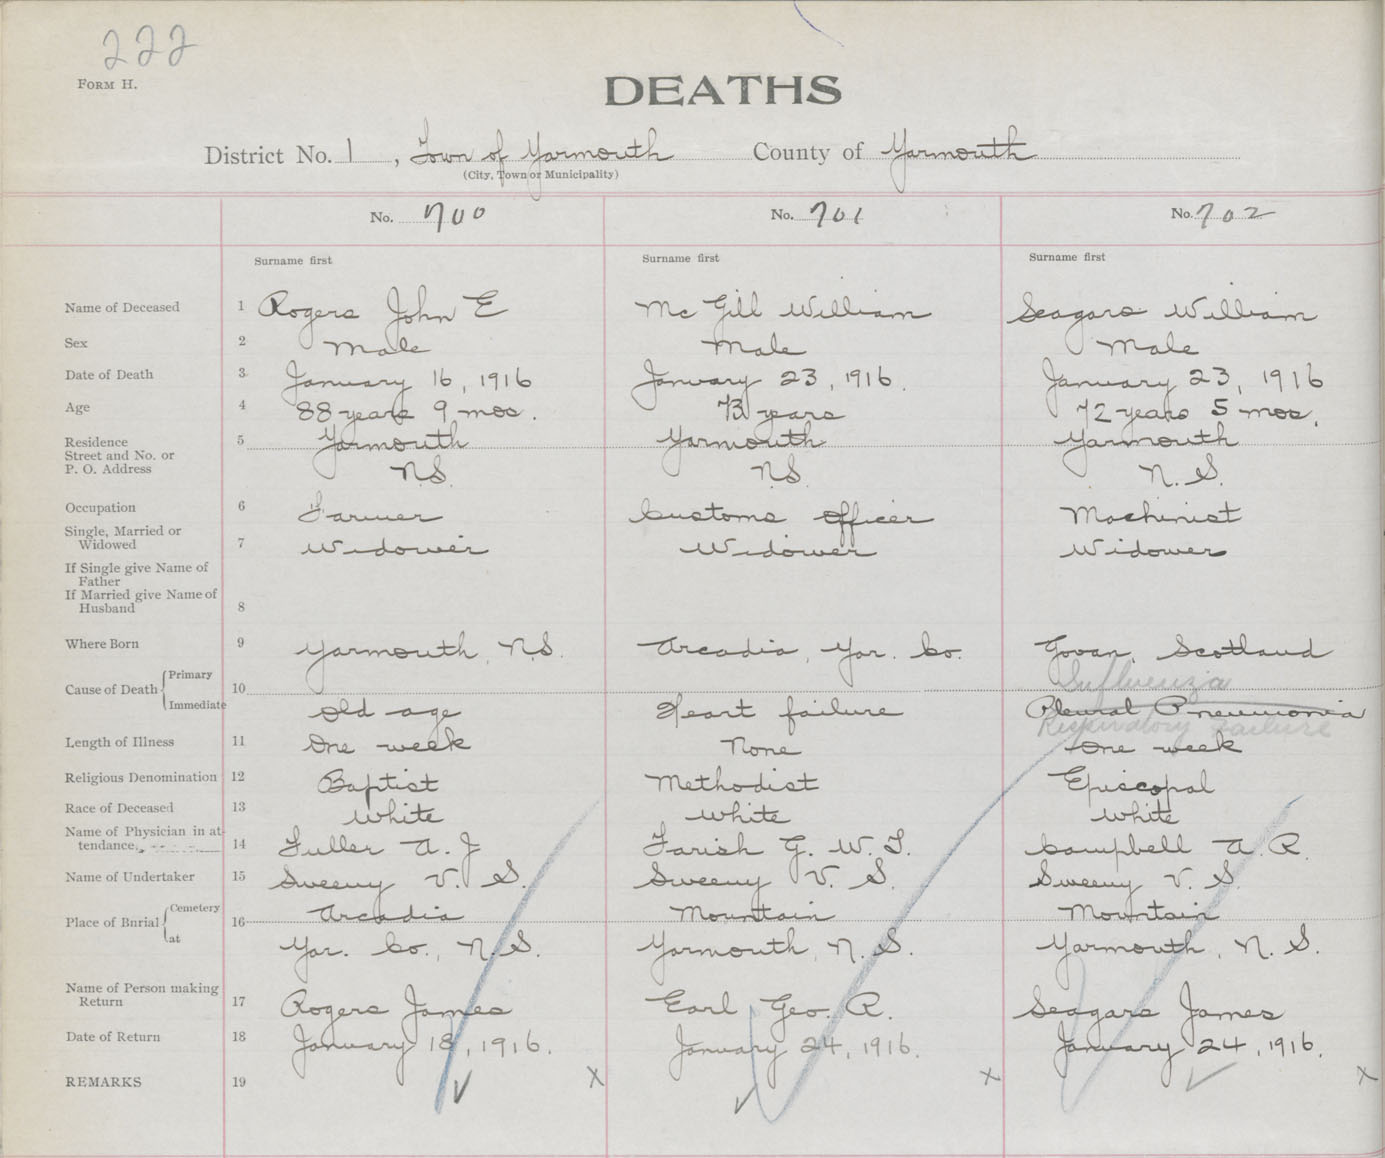 222
FORM H.
DEATHS
District No. 1, Town of Yarmouth County of Yarmouth
(City, Town or Municipality)
No. 700 No. 701 No. 702
Surname first Surname first Surname first
Name of Deceased 1 Rogers John E Mc Gill William Seagars William
Sex 2 Male Male Male
Date of Death 3 January 16, 1916 January 23, 1916. January 23, 1916
Age 4 88 years 9 mos. 73 years 72 years 5 mos.
Residence 5 Yarmouth Yarmouth Yarmouth
Street and No. or
P. O. Address N.S. N.S. N. S.
Occupation 6 Farmer Customs Officer Machinist
Single, Married or
Widowed 7 Widower Widower Widower
If Single give Name of
Father
If Married give Name of
Husband 8
Where Born 9 Yarmouth, N.S. Arcadia, Yar. Co. Govan, Scotland
Cause of Death Primary 10 Influenza
Immediate Old age Heart failure Pleural Pneumonia
Respiratory Failure
Length of Illness 11 One week None One week
Religious Denomination 12 Baptist Methodist Episcopal
Race of Deceased 13 White White White
Name of Physician in at-
tendance. 14 Fuller A. J Farish G. W. T. Campbell A. R.
Name of Undertaker 15 Sweeny V. S. Sweeny V. S. Sweeny V. S.
Place of Burial Cemetery 16 Arcadia Mountain Mountain
at Yar. Co., N. S. Yarmouth, N. S. Yarmouth, N. S.
Name of Person making
Return 17 Rogers James Earl Geo. R. Seagars James
Date of Return 18 January 18, 1916. January 24, 1916. January 24, 1916.
REMARKS 19 x x x